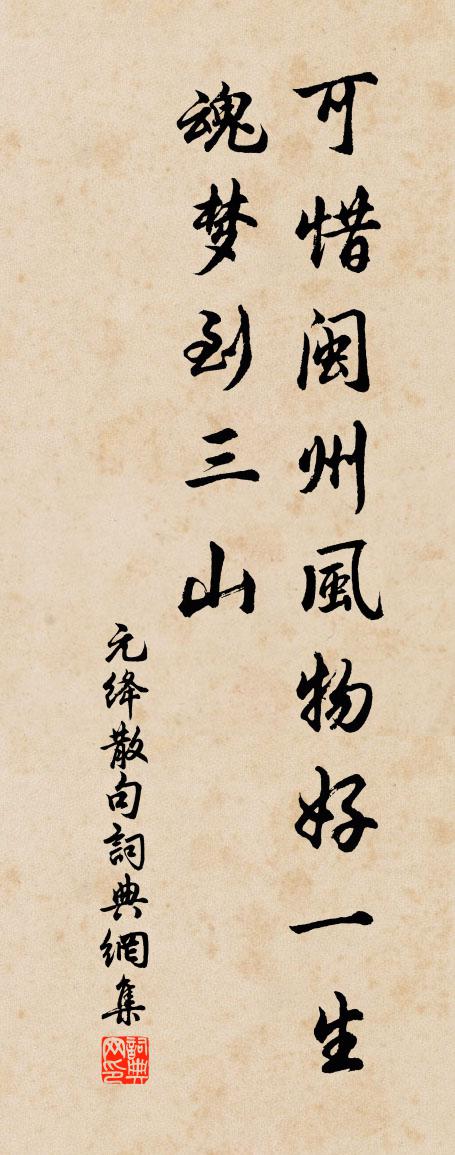 可惜闽州風物好一生
魂梦到三山
元绛散句詞典網集
詞典网印